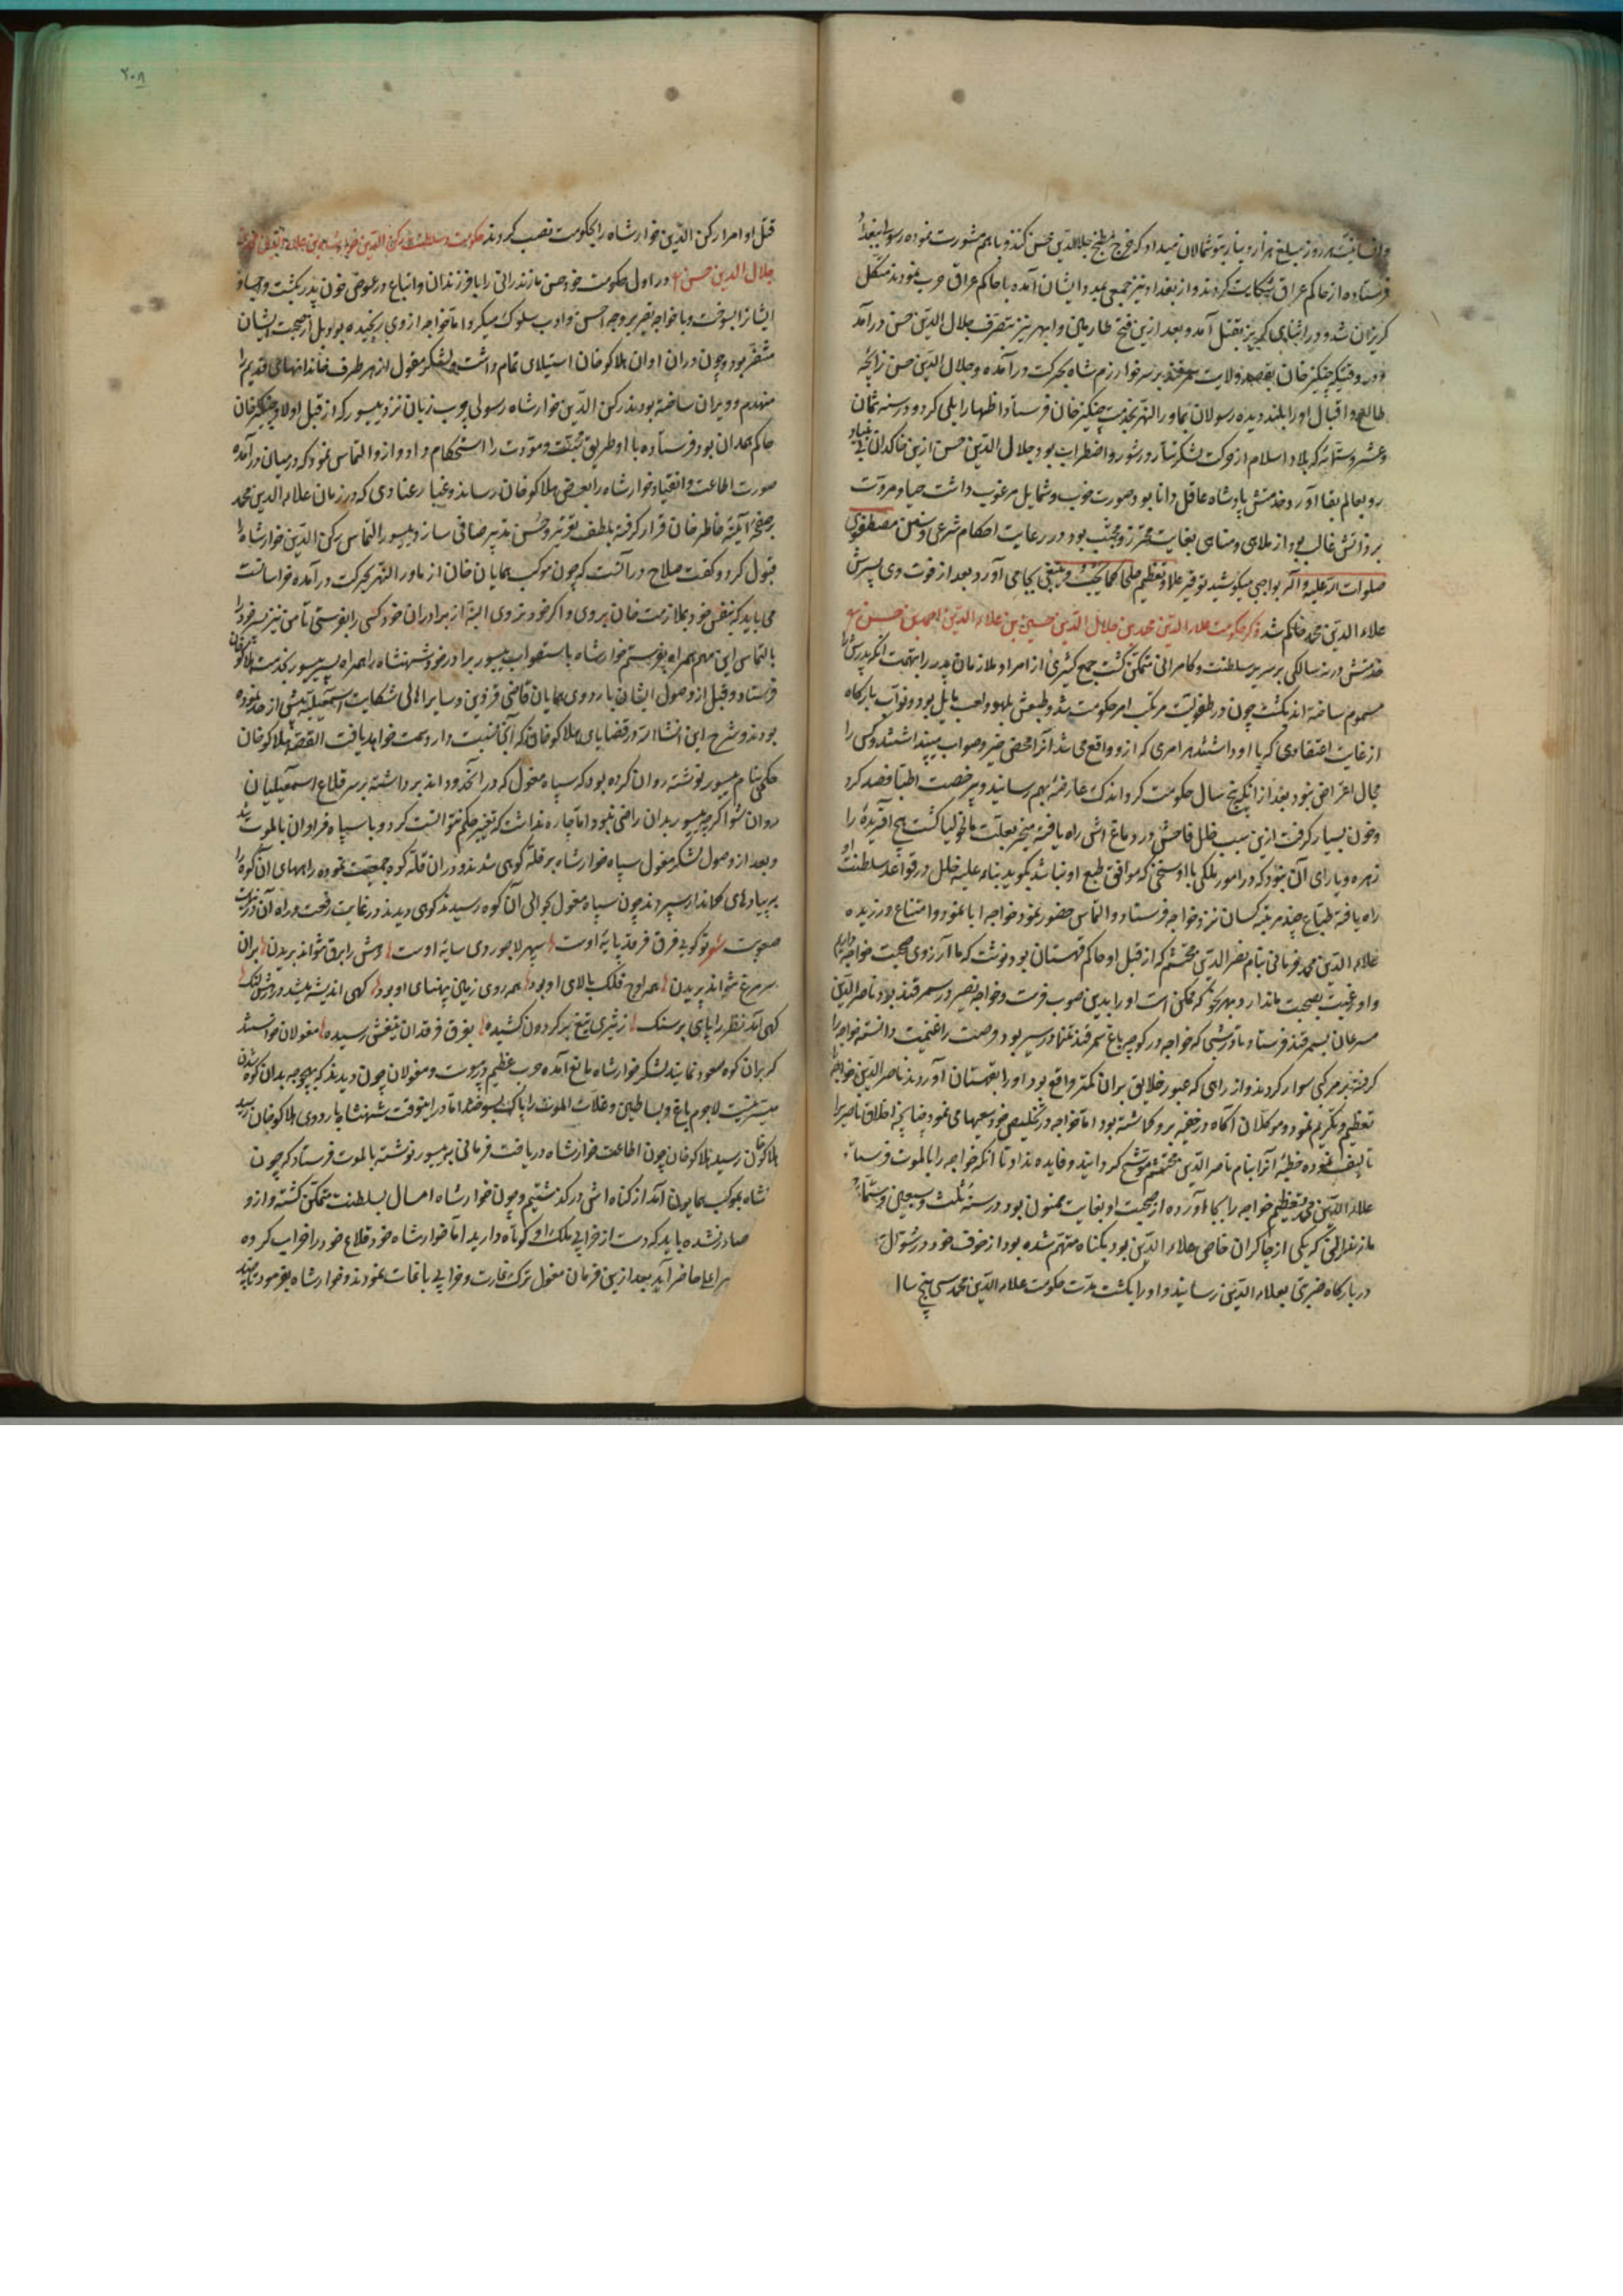 هر روز مبلغ هزار دینار بتوشمالان میداد که خرج مطبخ جلال‌الدین حسن کنند و باهم مشورت نموده رسولان ببغداد
فرستاده از حاکم عراق شکایت کردند و از بغداد نیز جمعی بمدد ایشان آمده با حاکم عراق حرب نمودند منکلی
کریزان شد و در اثنای کریز بقتل آمد و بعد ازین فتح طارمین و ابهر نیز بتصرف جلال الدین حسن درآمد
و در وقتیکه چنکیز خان بقصد ولایت بر سر خوارزم شاه بحرکت درآمده و جلال الدین حسن زایجه
طالع و اقبال او را بلند دیده رسولان بماورالنهر بخدمت چنکیز خان فرستاد اظهار ایلی کرد و در سنه ثمان
و عشر و ستمائه که بلاد اسلام از حرکت لشکر تتار در شور و اضطراب بود جلال الدین حسن ازین خاکدان بی بنیاد
رو بعالم بقا آورد و خدمتش پادشاه عاقل و دانا بود و صورت خوب و شمایل مرغوب داشت حیا و مروت
بر ذاتش غالب بود از ملاهی و مناهی بغایت محترز و مجتنب بود در رعایت احکام شرعی و سنن مصطفوی
صلوات الله علیه و آله بواجبی میکوشید توقیر علما و تعظیم صلحا کما یجب و ینبغی بجا می آورد بعد از فوت وی پسرش
علاء الدین محمد حاکم شد ذکر حکومت علاء الدین محمد بن جلال الدین حسن بن علاء الدین محمد بن حسن
خدمتش در نه سالکی بر سریر سلطنت و کامرانی متمکن کشت جمع کثیری از امرا و ملازمان پدر را بتهمت آنکه پدرش را
مسموم ساخته اند بکشت چون در طفولیت مرتکب امر حکومت شد و طبعش بلهو و لعب مایل بود و نواب بارکاه
از غایت اعتقادی که با او داشتند هر امری که ازو واقع می شد آنرا محض خیر و صواب می پنداشتند و کسی را
مجال اعتراض نبود بعد از آنکه پنج سال حکومت کرد اندک عارضه بهم رسانید و بی رخصت اطبا فصد کرد
و خون بسیار کرفت ازین سبب خلل فاحش در دماغ اش راه یافته منجر بعلت مالیخولیا کشت هیچ آفریده را
زهره و یارای آن نبود که در امور ملکی با او سخنی که موافق طبع او نباشد بکوید بناء علیه خلل در قواعد سلطنت او
راه یافته چند مرتبه کسان نزد خواجه فرستاد و التماس حضور نمود خواجه ابا نمود و امتناع ورزیده
علاء الدین محمد فرمانی بنام نصر الدین محتشم که از قبل او حاکم قهستان بود نوشت که ما آرزوی صحبت خواجه داریم
و او رغبت بصحبت ما ندارد بهر نحو که ممکن است او را بدین صوب فرست و خواجه نصیر در سمرقند بود ناصر الدین
مسرعان بسمرقند فرستاد تا در شبی که خواجه در کوچه باغ سمرقند تنها در سیر بود فرصت را غنیمت دانسته خواجه را
کرفته بر مرکبی سوار کردند و از راهی که عبور خلایق بران کمتر واقع بود او را بقهستان آوردند ناصر الدین خواجه را
تعظیم و تکریم نمود و موکلان آکاه در خفیه برو کماشته بود اما خواجه در تخلیص خود سعیها می نمود چنانچه اخلاق ناصری را
تالیف نموده خطبه آنرا بنام ناصر الدین محتشم موشح کردانید و فایده نداد تا آنکه خواجه را بالموت فرستاد
علاء الدین محمد تعظیم خواجه را بجا آورده از صحبت او بغایت ممنون بود در سنه ثلث و سبعین و ستمائه
مازندرانی که یکی از چاکران خاص علاء الدین بود بکناه متهم شده بود از خوف خود در شوال
در بارکاه ضربتی بعلاء الدین رسانید و او را بکشت مدت حکومت علاء الدین محمد سی پنج سال
۲۰۸
قتل او امرا رکن الدین خوارشاه را بحکومت نصب کردند حکومت و سلطنت رکن الدین خوارشاه بن علاء الدین محمد بن
جلال الدین حسن در اول حکومت خود حسن مازندرانی را با فرزندان و اتباع در عوض خون پدر بکشت و اجساد
ایشانرا بسوخت و با خواجه نصیر بر وجه احسن و ادب سلوک میکرد اما خواجه از وی رنجیده بود و بدل از صحبت ایشان
متنفر بود و چون دران اوان هلاکو خان استیلای تمام داشت و لشکر مغول از هر طرف خاندانهای قدیم را
منهدم و ویران ساخته بودند رکن الدین خوارشاه رسولی چرب زبان نزد بیسور که از قبل اولاد چنکیز خان
حاکم همدان بود فرستاده با او طریق محبت و مودت را استحکام داد و ازو التماس نمود که در میان درآمده
صورت اطاعت و انقیاد خوارشاه را بعرض هلاکو خان رساند و غبار عنادی که در زمان علاء الدین محمد
بر صفحه آیینه خاطر خان قرار کرفته بلطف تقریر و حسن تدبیر صافی سازد بیسور التماس رکن الدین خوارشاه را
قبول کرد و کفت صلاح در آنست که چون موکب همایان خان از ماورالنهر بحرکت درآمده خواسانست
می باید که بنفس خود بملازمت خان بروی و اکر خود نروی البته از برادران خود کسی را بفرستی تا من نیز پسر خود را
بالتماس این مهم همراه بفرستم خوارشاه باستصواب بیسور برادر خود شهنشاه را همراه پسر بیسور بخدمت هلاکو خان
فرستاد و قبل از وصول ایشان باردوی همایان قاضی قزوین و سایر اهالی شکایت اسمعیلیه بیش از حد نموده
بودند و شرح این انشاالله در قضایای هلاکو خان که آنجا نسبت دارد سمت خواهد یافت القصه هلاکو خان
حکمی بنام بیسور نوشته روان کرده بود که سپاه مغول که در آنحدود اند برداشته بر سر قلاع اسمعیلیان
روان شو اکرچه بیسور بدان راضی نبود اما چاره نداشت که تغییر حکم نتوانست کرد و با سپاه فراوان بالموت شد
و بعد از وصول لشکر مغول سپاه خوارشاه بر قله کوهی شدند و دران قله کوه جمعیت نموده راههای آن کوه را
به پیادهای کماندار سپردند چون سپاه مغول بحوالی آن کوه رسیدند کوهی دیدند در غایت رفعت و راه آن در نهایت
صعوبت شعر تو کویی فرق فرقد پایه اوست سپهر لاجوردی سایه اوست وهمش را برق نتواند بریدن بران
سر مرغ نتواند پریدن همه اوج فلک بالای او بود همه روی زمین پهنای او بود کهی اندیشه میشد در رهش لنک
کهی آمد نظر را پای بر سنک ز تیزی تیغ بر کردون کشیده بفرق فرقدان تیغش رسیده مغولان خواستند
که بران کوه صعود نمایند لشکر خوارشاه مانع آمده حرب عظیم در پیوست و مغولان چون دیدند که بهیچ وجه بدان کوه شدن
میسر نیست لاجرم باغ و بساطین و غلات الموت را پاک بسوختند اما در اینوقت شهنشاه باردوی هلاکو خان رسید
هلاکو خان چون اطاعت خوارشاه دریافت فرمانی به بیسور نوشته بالموت فرستاد که چون
شاه بموکب همایون آمد از کناه اش در کذشتیم و چون خوارشاه امسال بسلطنت متمکن کشته و ازو
صادر نشده باید که دست از خرابی ملک او کوتاه دارید اما خوارشاه خود قلاع خود را خراب کرده
حاضر آید بعد ازین فرمان مغول ترک غارت و خرابی باغات نمودند و خوارشاه بفرمود تا چند